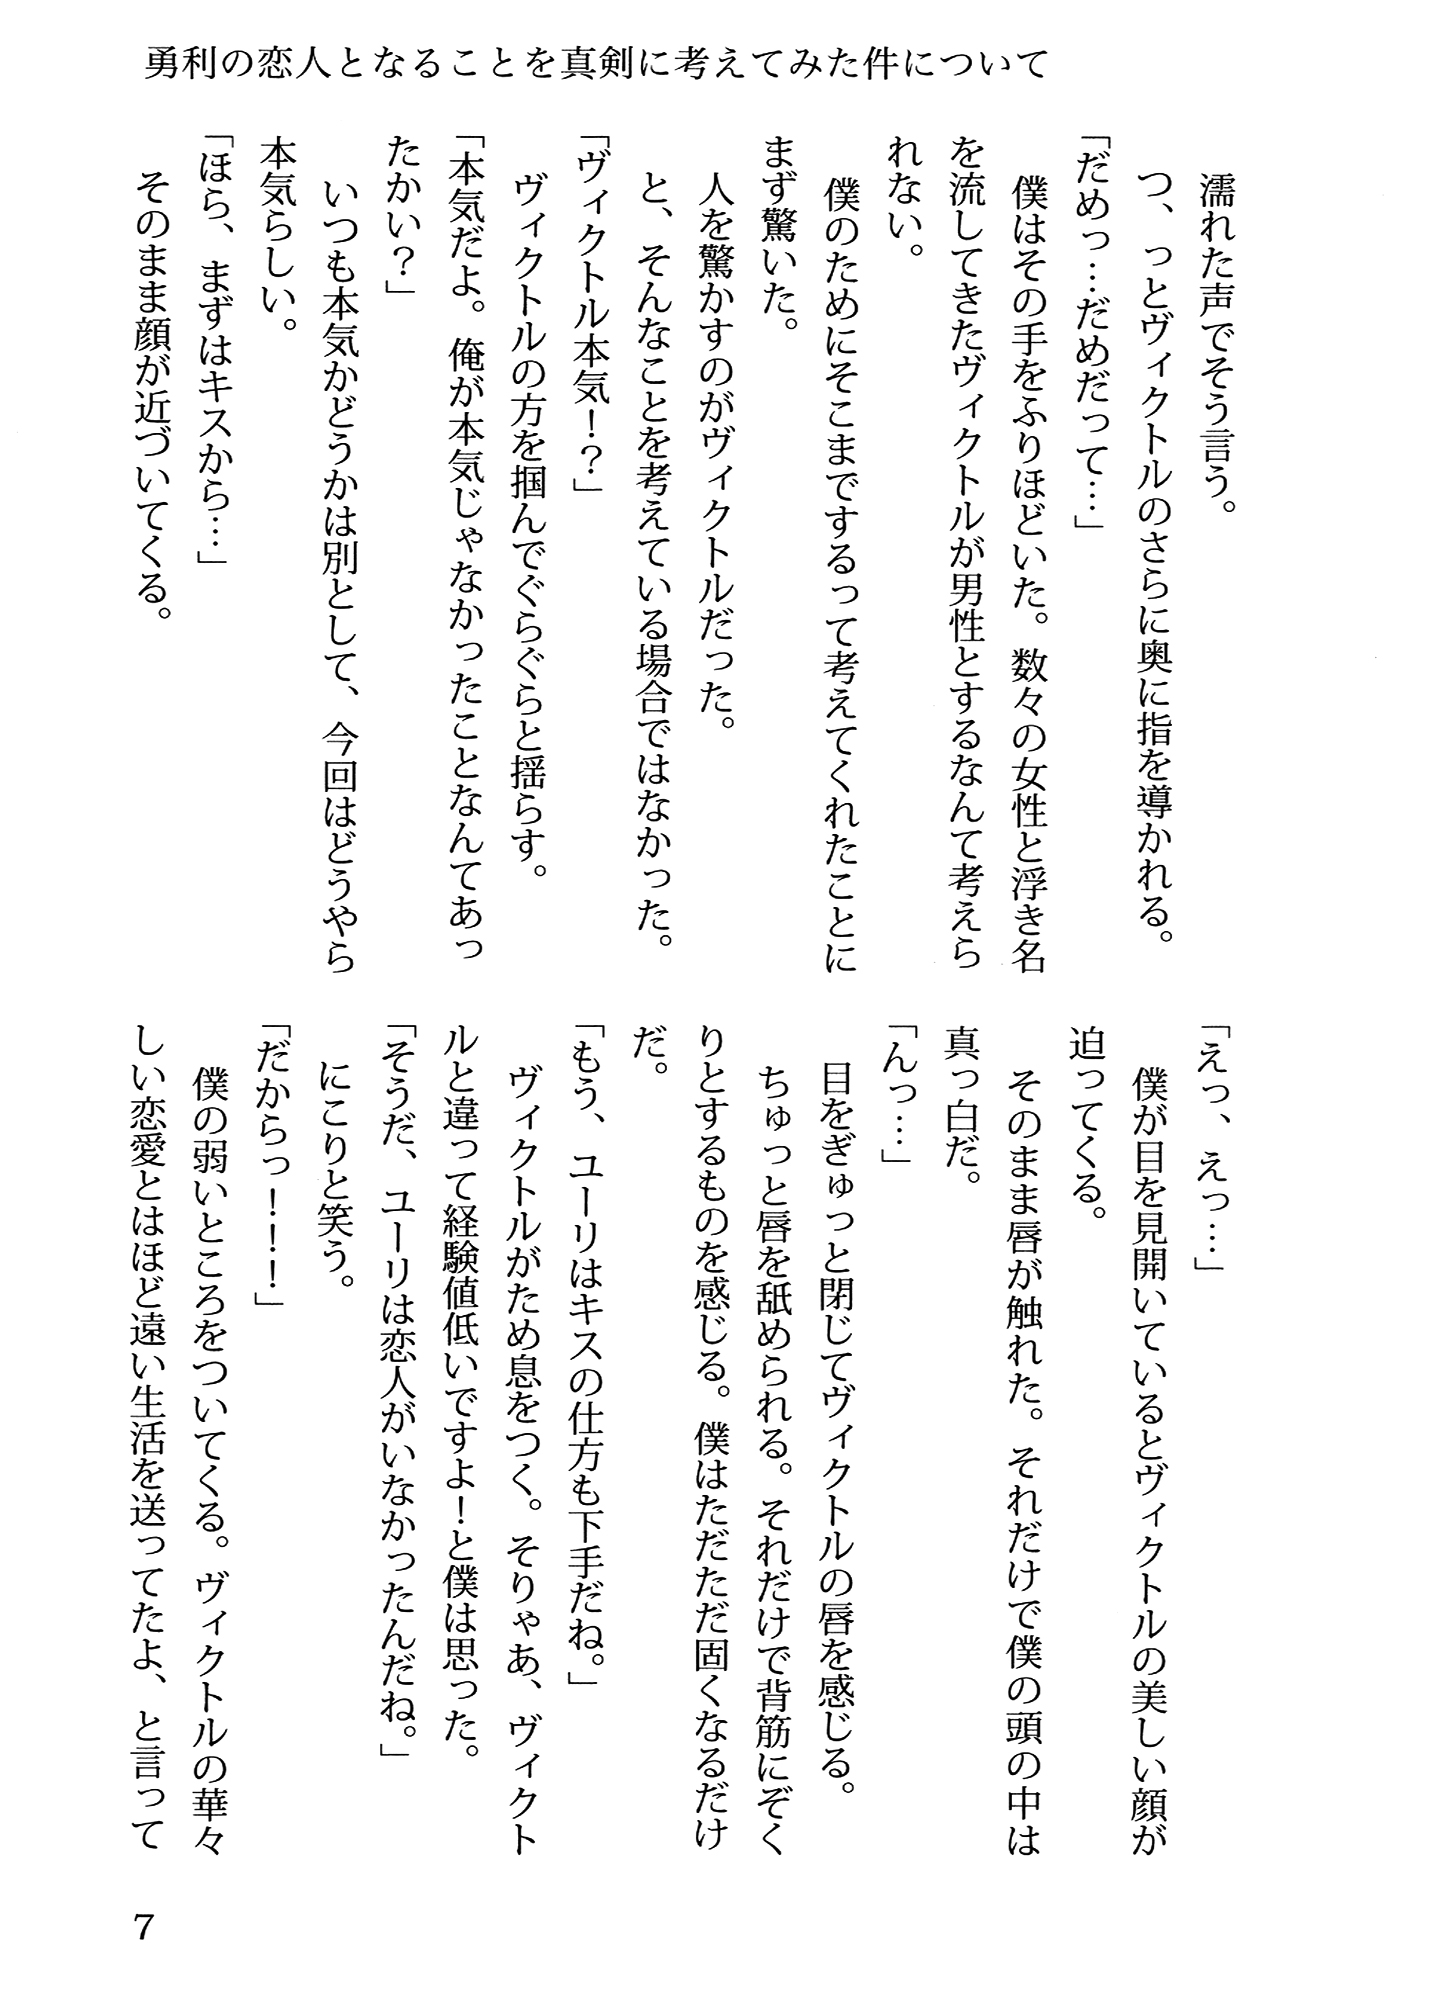 勇利の恋人となることを真剣に考えてみた件について
濡れた声でそう言う。
つ、っとヴィクトルのさらに奥に指を導かれる。
「だめっ…だめだって…」
僕はその手をふりほどいた。数々の女性と浮き名
を流してきたヴィクトルが男性とするなんて考えら
れない。
僕のためにそこまでするって考えてくれたことに
まず驚いた。
人を驚かすのがヴィクトルだった。
と、そんなことを考えている場合ではなかった。
「ヴィクトル本気！？」
ヴィクトルの方を掴んでぐらぐらと揺らす。
「本気だよ。俺が本気じゃなかったことなんてあっ
たかい？」
いつも本気かどうかは別として、今回はどうやら
本気らしい。
「ほら、まずはキスから…」
そのまま顔が近づいてくる。
「えっ、えっ…」
僕が目を見開いているとヴィクトルの美しい顔が
迫ってくる。
そのまま唇が触れた。それだけで僕の頭の中は
真っ白だ。
「んっ…」
目をぎゅっと閉じてヴィクトルの唇を感じる。
ちゅっと唇を舐められる。それだけで背筋にぞく
りとするものを感じる。僕はただただ固くなるだけ
だ。
「もう、ユーリはキスの仕方も下手だね。」
ヴィクトルがため息をつく。そりゃあ、ヴィクト
ルと違って経験値低いですよ！と僕は思った。
「そうだ、ユーリは恋人がいなかったんだね。」
にこりと笑う。
「だからっ！！！」
僕の弱いところをついてくる。ヴィクトルの華々
しい恋愛とはほど遠い生活を送ってたよ、と言って
7